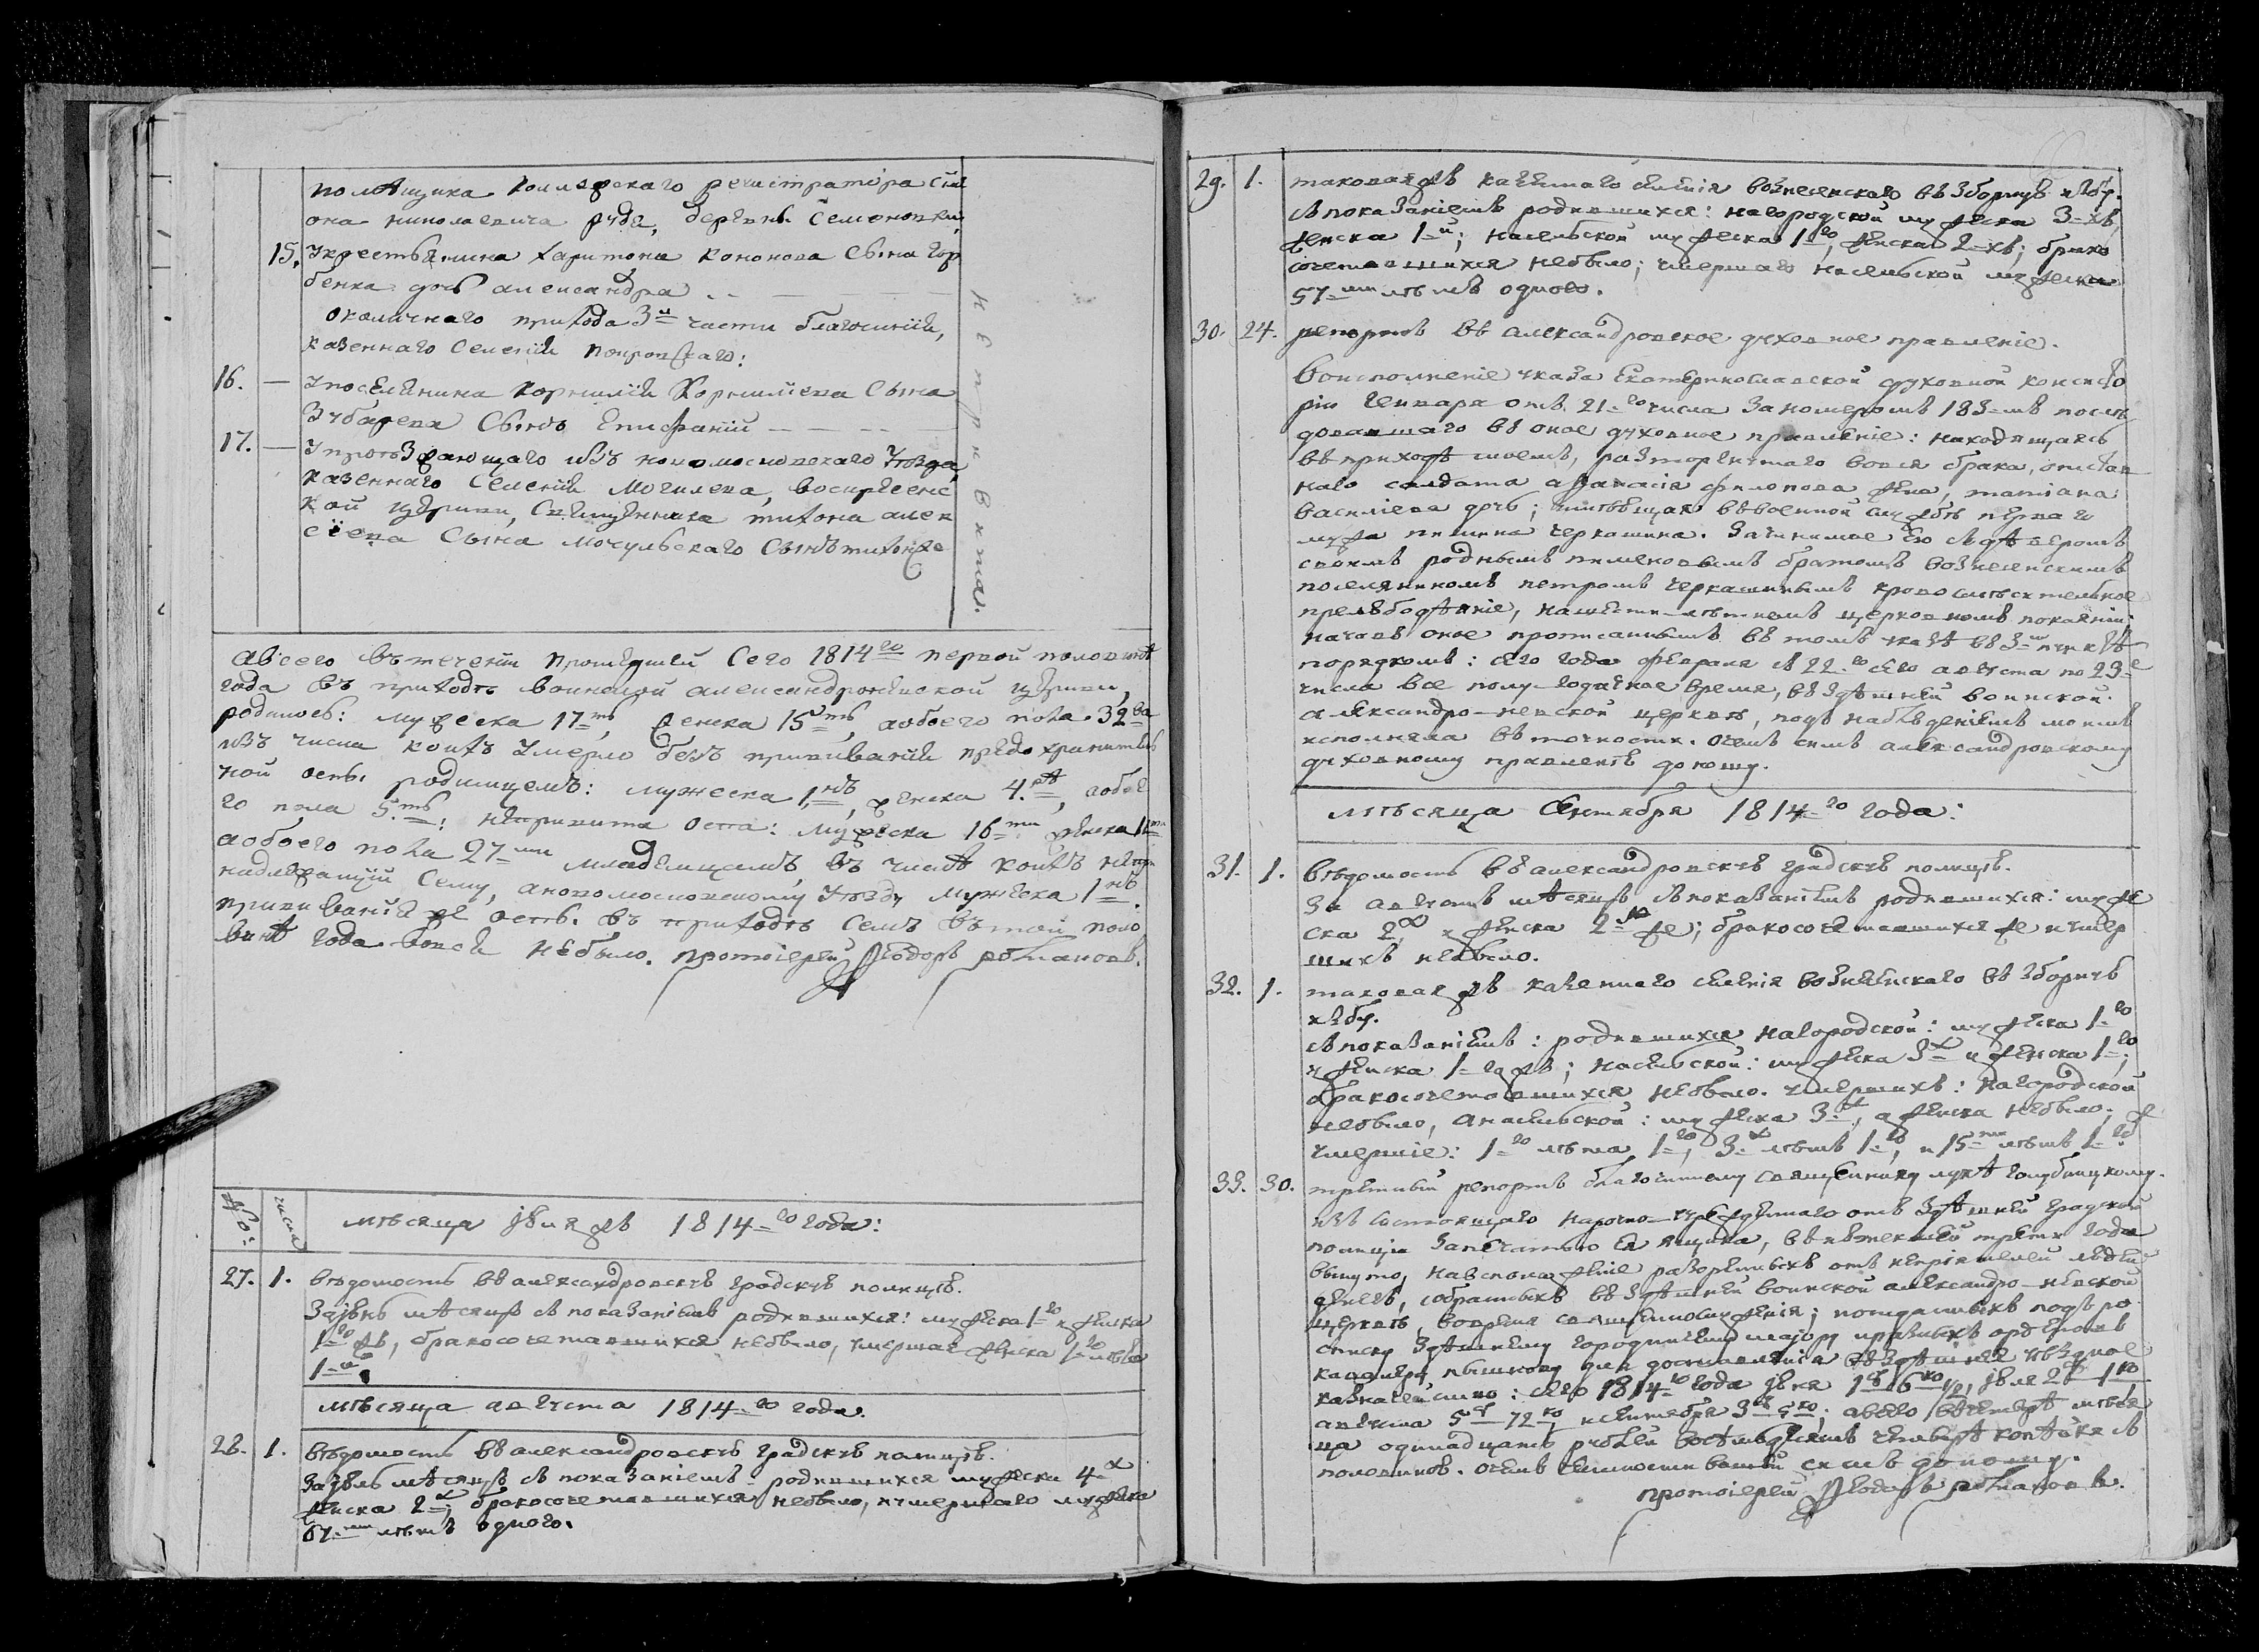 помѣщика коллежскаго регистратора Сим
она николаевича руда, деревни Семеновки,
15. Укрестьянина харитона кононова Сына гор
бенка дочь александра
околичнаго прихода 3й части благочинїй,
казеннаго Селенїй покровскаго:
16. — Упоселянина корнилїй корнилїева Сына
Зубарева Сынъ Епифанїй — — — —
17. — Упроѣзжающаго изъ новомосковскаго Уѣзда,
казеннаго Селенїй Могилева, воскресенс
кой церкви, Священника тихона алек
сїева Сына мочульскаго Сынъ
непривита.
авсего въ теченїи прошедшей Сего 1814го первой половинѣ
года въ приходѣ воинской александроневской церкви,
родилось: мужеска 17ть, женска 15ть, аобоего пола 32ва
изъ числа коихъ Умерло безъ прививанїй предохранитель
ной оспы родимцемъ: мужеска 1нъ, женска 4ре, аобое
го пола 5ть: непривита оспа: мужеска 16ти женска 11ти
аобоего пола 27ми младенцемъ, въ числѣ коихъ непри
надлежащїй Сему,ановомосковскому Уѣзду мужеска 1нъ.
прививанїя же оспы въ приходѣ Семъ въ той поло
винѣ года вовсѣ небыло. протоїерей Ѳеодоръ романовъ.
№: числа
мѣсяца јюля жъ 1814го года:
27. 1. вѣдомость въ александровскуѣ градскуѣ полицїѣ.
За јюнь мѣсяцъ съ показанїемъ родившихся: мужеска 1го и женска
1го жъ, бракосочетавшихся небыло, умершая женска 1го лѣта
1на
мѣсяца августа 1814го года.
28. 1. вѣдомость въ александровскуѣ градскуѣ полицїѣ.
За јюль мѣсяцъ съ показанїемъ родившихся мужеска 4х
женска 2х; бракосочетавшихся небыло, иумершаго мужеска
67ми лѣтъ одного.
29. 1. таковая жъ казеннаго селенїя вознесенскаго въ зборнуѣ избу.
съ показанїемъ родившихся: нагородской мужеска 3хъ,
женска 1й; насельской мужеска 1го, женска 2хъ; брако
сочетавшихся небыло; умершаго насельской мужеска
57ми лѣтъ одного.
30. 24. репортъ въ александровское духовное правленїе.
воисполненїе указа Екатеринославской духовной консисто
рїи генваря отъ 21го числа за номеромъ 183мъ послѣ
довавшаго въ оное духовное правленїе: находящаясь
въ приходѣ моемъ, расторженнаго вовся брака, отстав
наго солдата афанасїя филопова жена, татїана
васильева дочь; имѣющая въ военной службѣ перваго
мужа пимина черкашина. Зачинимое Ею съ деверомъ
своимъ роднымъ пименовымъ братомъ вознесенскимъ
поселяниномъ петромъ черкашинымъ кровосмѣсительное
прелѣбодѣянїе, нашести-лѣтнемъ церковномъ покаянїи.
началъ оное прописаннымъ въ томъ указѣ въ 3м пунктѣ
порядкомъ: сего года февраля съ 22го сего августа по 23е
числа все полу-годичное время, въ здѣшней воинской
александро-невской церквѣ, подъ наблюденїемъ моимъ
исполняла въ точности. очемъ симъ александровскому
духовному правленїѣ доношу.
мѣсяца Сентября 1814го года:
31. 1. вѣдомость въ александровскуѣ градскуѣ полицїѣ.
За августъ мѣсяцъ съ показанїемъ родившихся: муже
ска 2х и женска 2х же; бракосочетавшихся же и умер
шихъ небыло.
32. 1. таковая жъ казеннаго селенїя вознесенскаго въ зборнуѣ
избу.
съ показанїемъ: родившихся нагородской: мужеска 1го
и женска 1го жъ; насельской: мужеска 3х и женска 1го;
бракосочетавшихся небыло. умершихъ: нагородской
небыло, анасельской: мужеска 3х, аженска небыло;
умершїе: 1го лѣта 1го, 3х лѣтъ 1го, и 15ти лѣтъ 1го
33. 30. третный репортъ благочинному священнику лукѣ голубицкому.
изъ состоящаго нарочно учрежденнаго отъ здѣшней градской
полицїи запечатаннаго Ея ящика, въ истекшей трети года
вынуто, навспоможенїе разоренныхъ отъ непрїятелей людей
денегъ, собранныхъ въ здѣшней воинской александро-невской
церквѣ, вовремя священнослуженїя; поотданныхъ подъ ро
списку здѣшнему городничему маїору и разныхъ орденовъ
кавалеру пышкову для доставленїя въ здѣшнее уѣздное
казначейство: сего 1814го года јюня 1р 6ко ½, јюля 2р 1ко
августа 5р 72ко, исентября 3р 5ко; авсего въ четыре мѣся
ца одинадцать рублей восемьдесятъ четыре копѣйки съ
половиною. очемъ честности вашей симъ доношу.
протоїерей Ѳеодоръ романовъ.